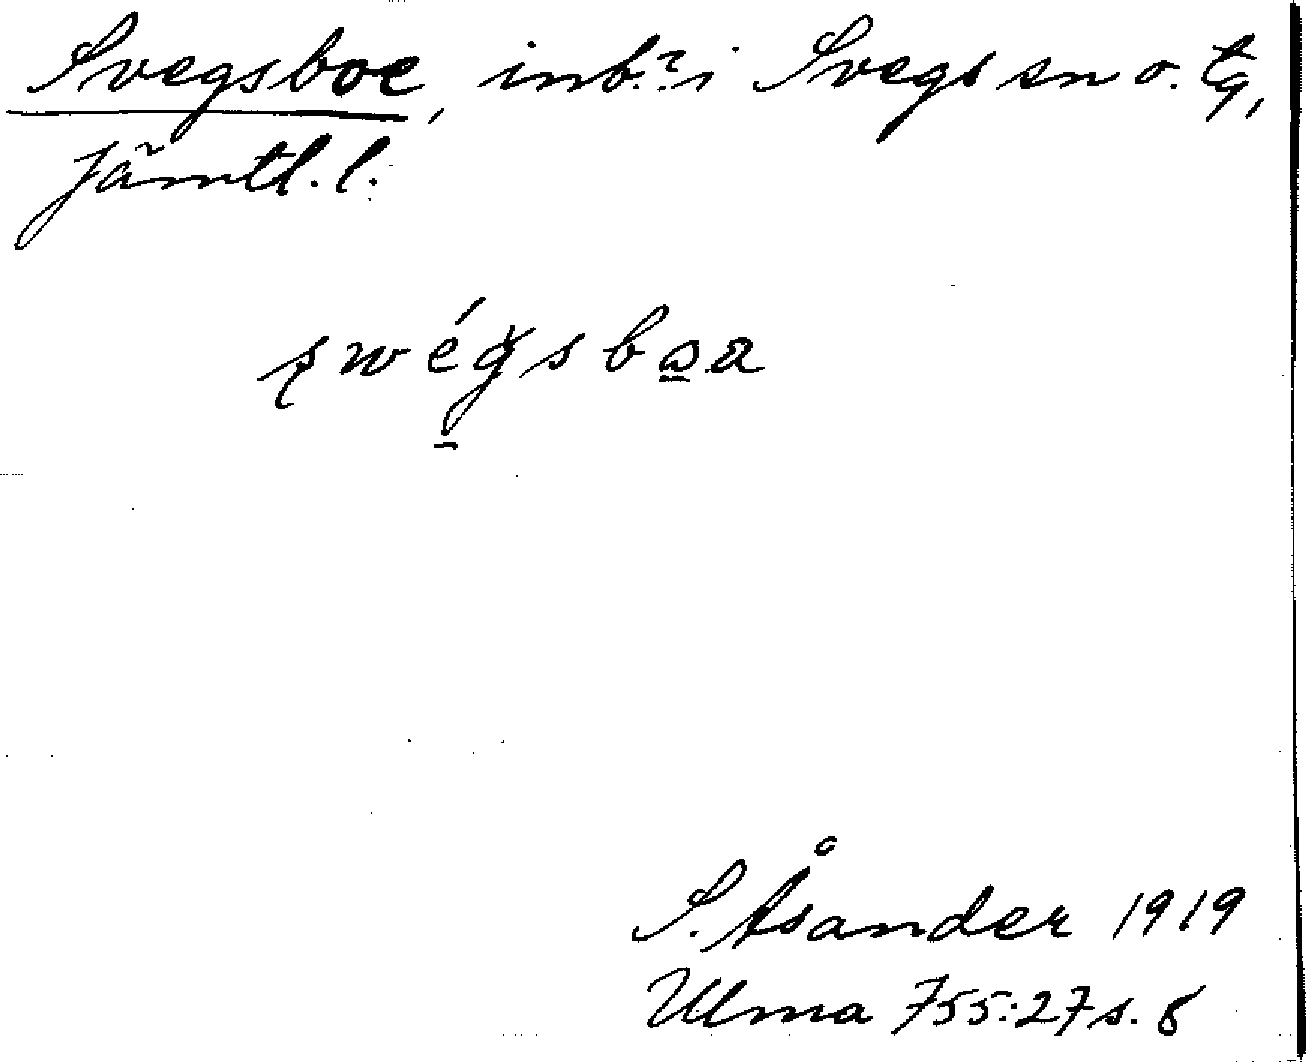 Svegsboe, inb. i Svegs sn o. tg,
Jämtl. l.
swégsboa
S. Åsander 1919
Ulma 755:27 s. 8